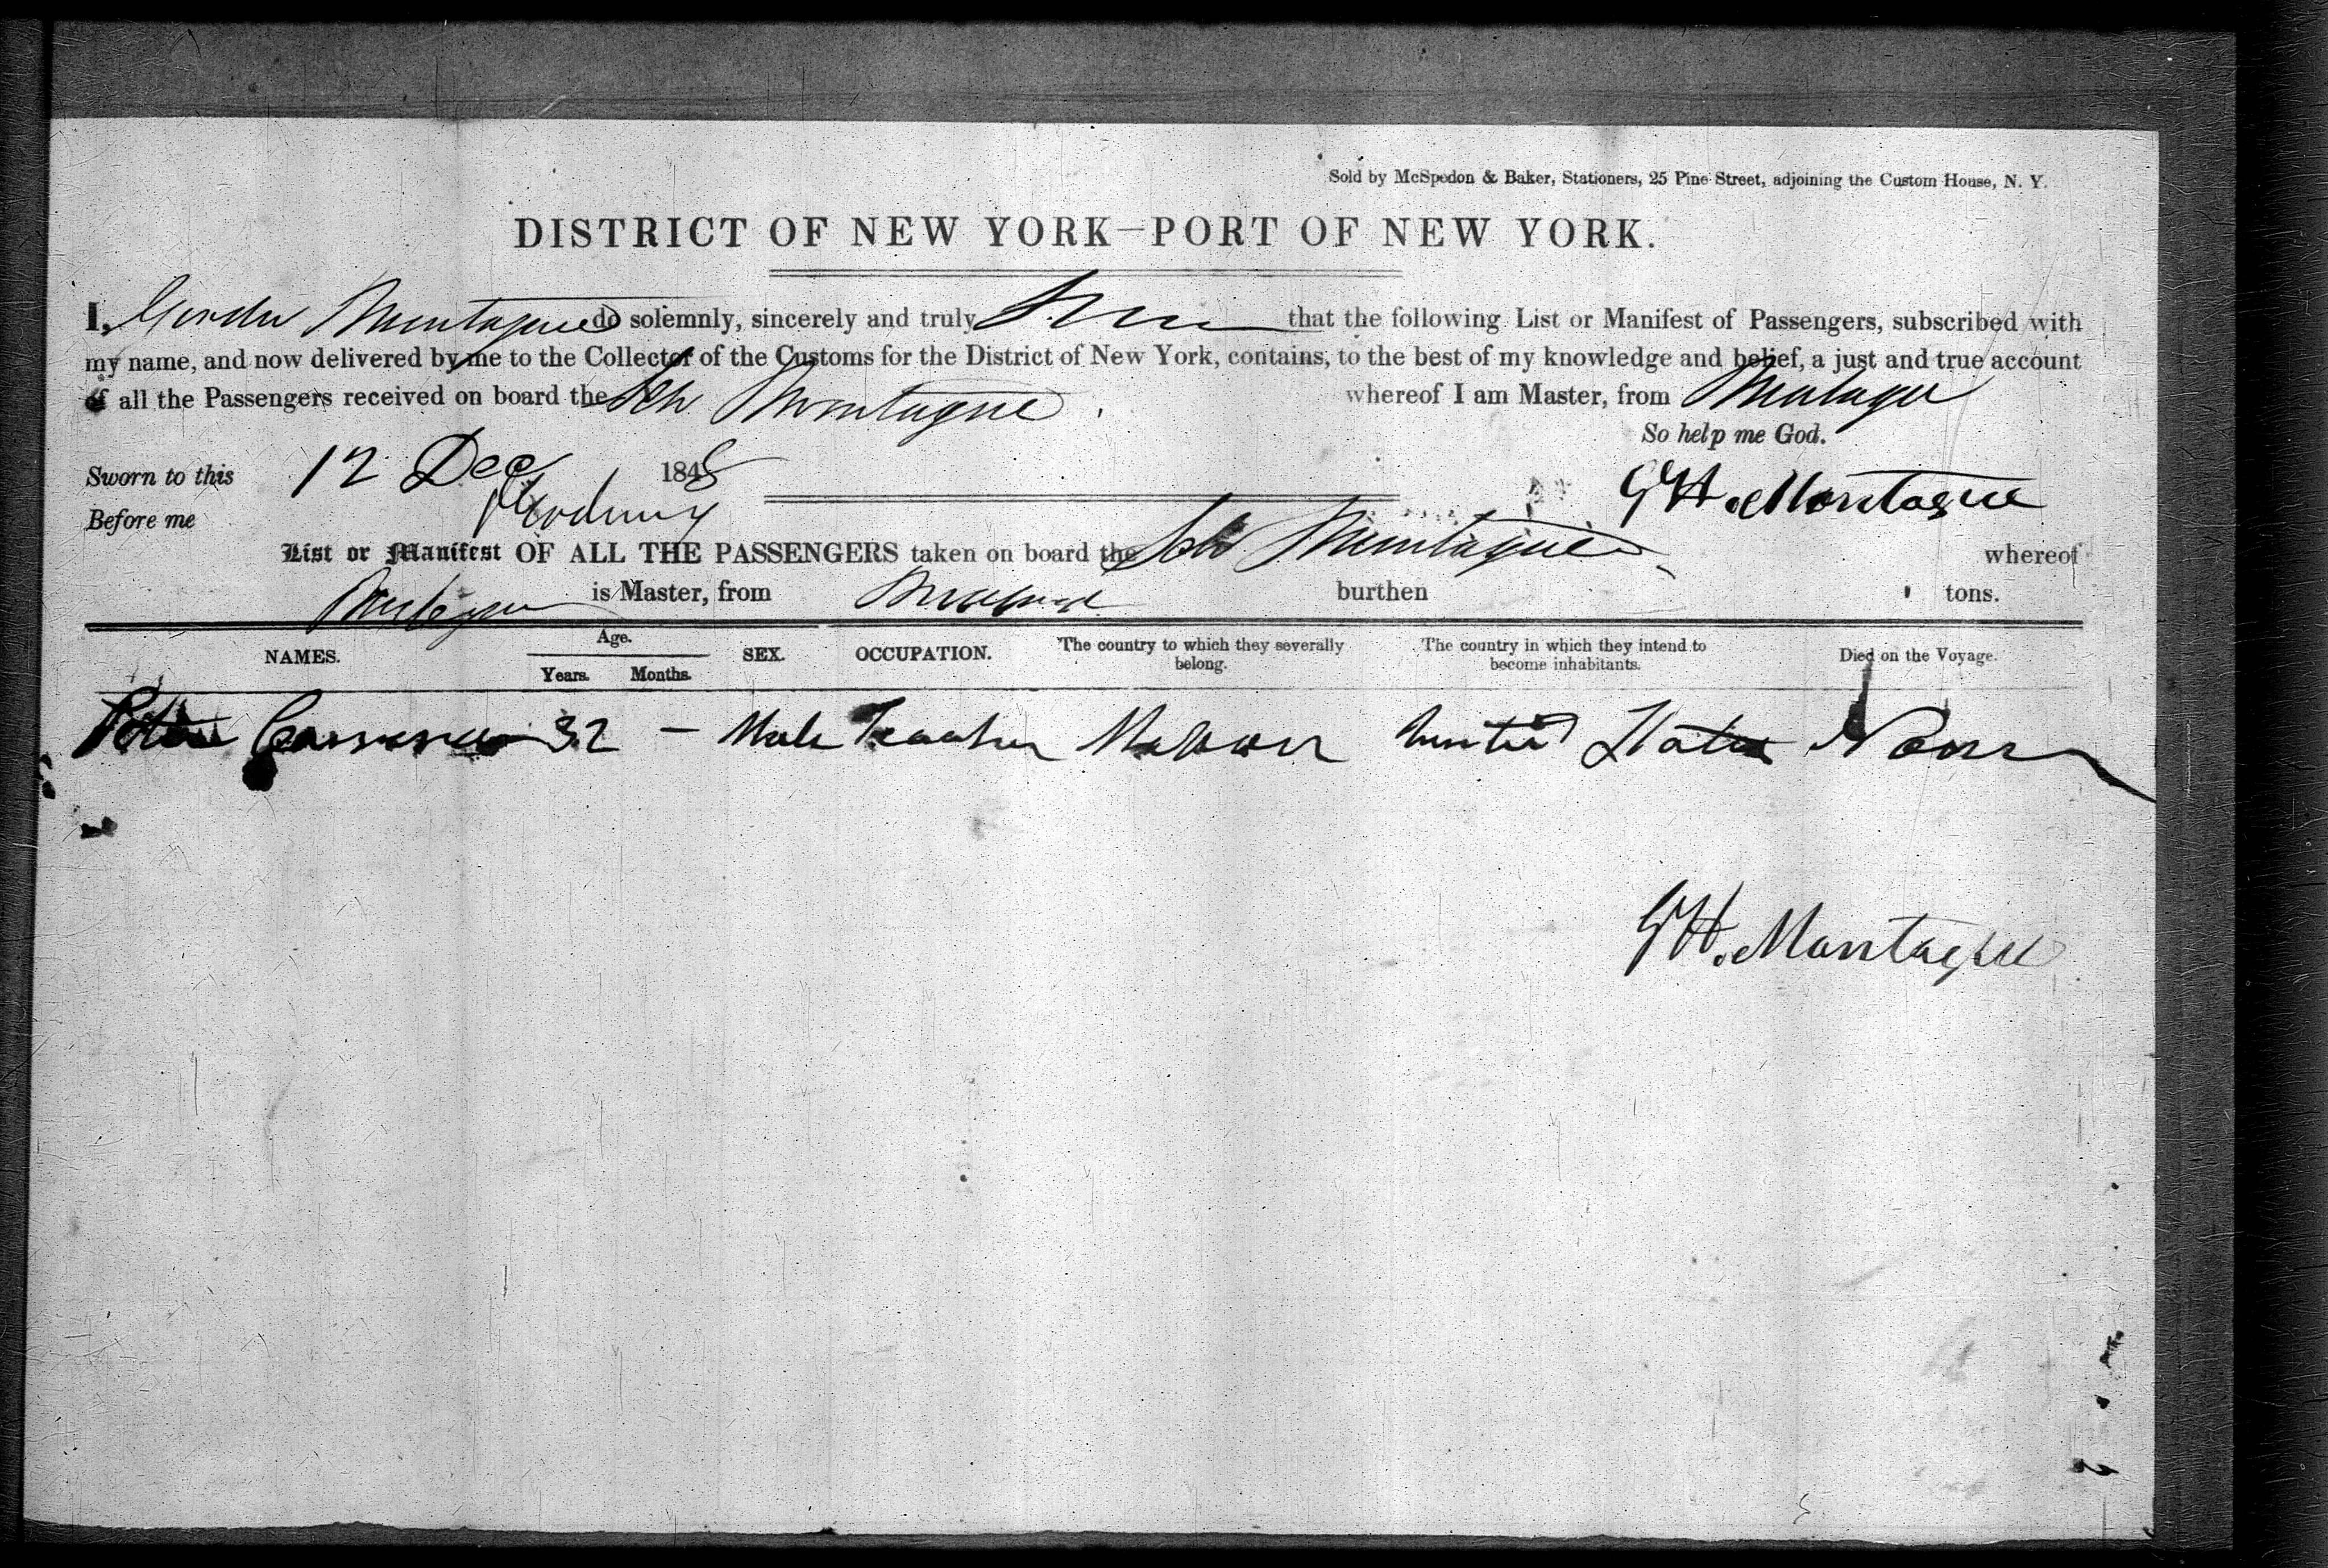 Sold by McSpedon & Baker, Stationers, 25 Pine Street, adjoining the Custom House, N. Y.
DISTRICT OF NEW YORK—PORT OF NEW YORK.
I, Montague do solemnly, sincerely and truly that the following List or Manifest of Passengers, subscribed with
my name, and now delivered by me to the Collector of the Customs for the District of New York, contains, to the best of my knowledge and belief, a just and true account
of all the Passengers received on board the Sch Montague whereof I am Master, from
So help me God.
Sworn to this 12 Dec 1848
G H. Montague
Before me
List or Manifest OF ALL THE PASSENGERS taken on board the Sch Montague whereof
is Master, from burthen tons.
NAMES. Age. Years. Months. SEX. OCCUPATION. The country to which they severally belong. The country in which they intend to become inhabitants. Died on the Voyage.
32 – Male Teacher Mahon United States None
G H. Montague